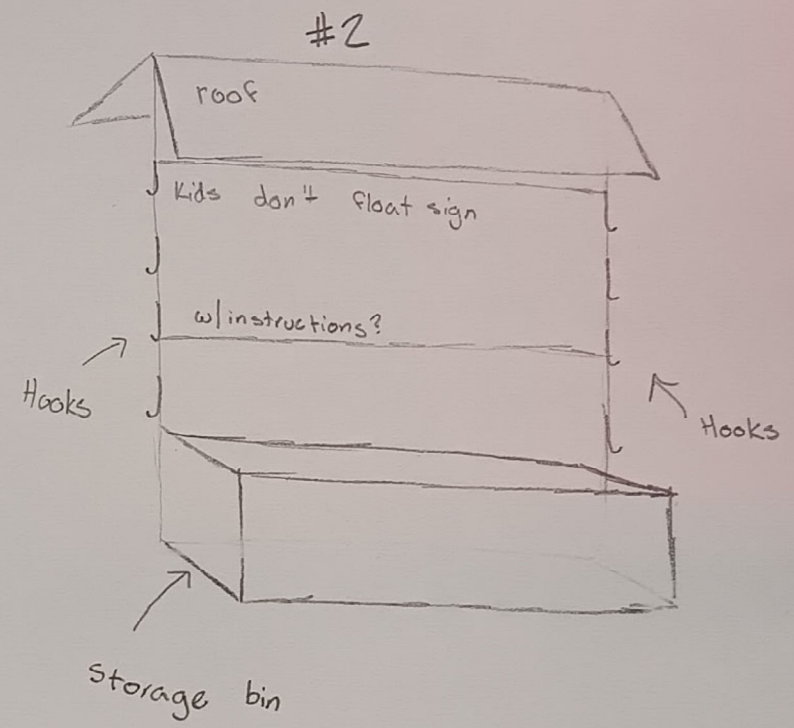 #2
roof
Kids don't float sign
w/instructions?
Hooks
Hooks
Storage bin